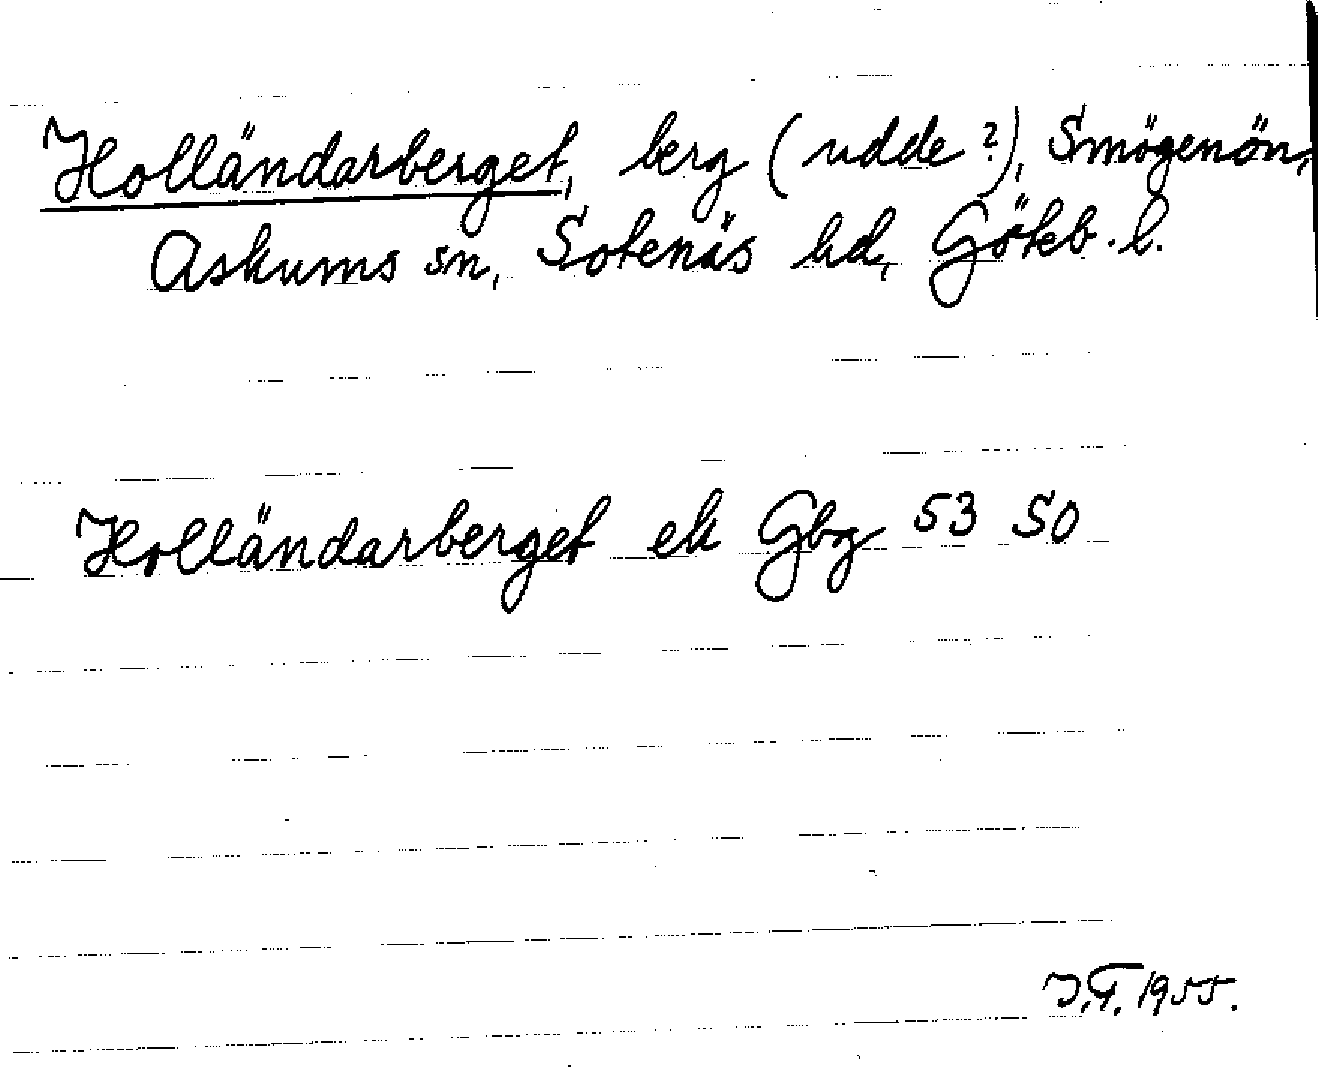 Holländarberget, berg (udde?), Smögenön,
Askums sn, Sotenäs hd, Göteb. l.
Holländarberget ek Gbg 53 SO
J.F. 1955.